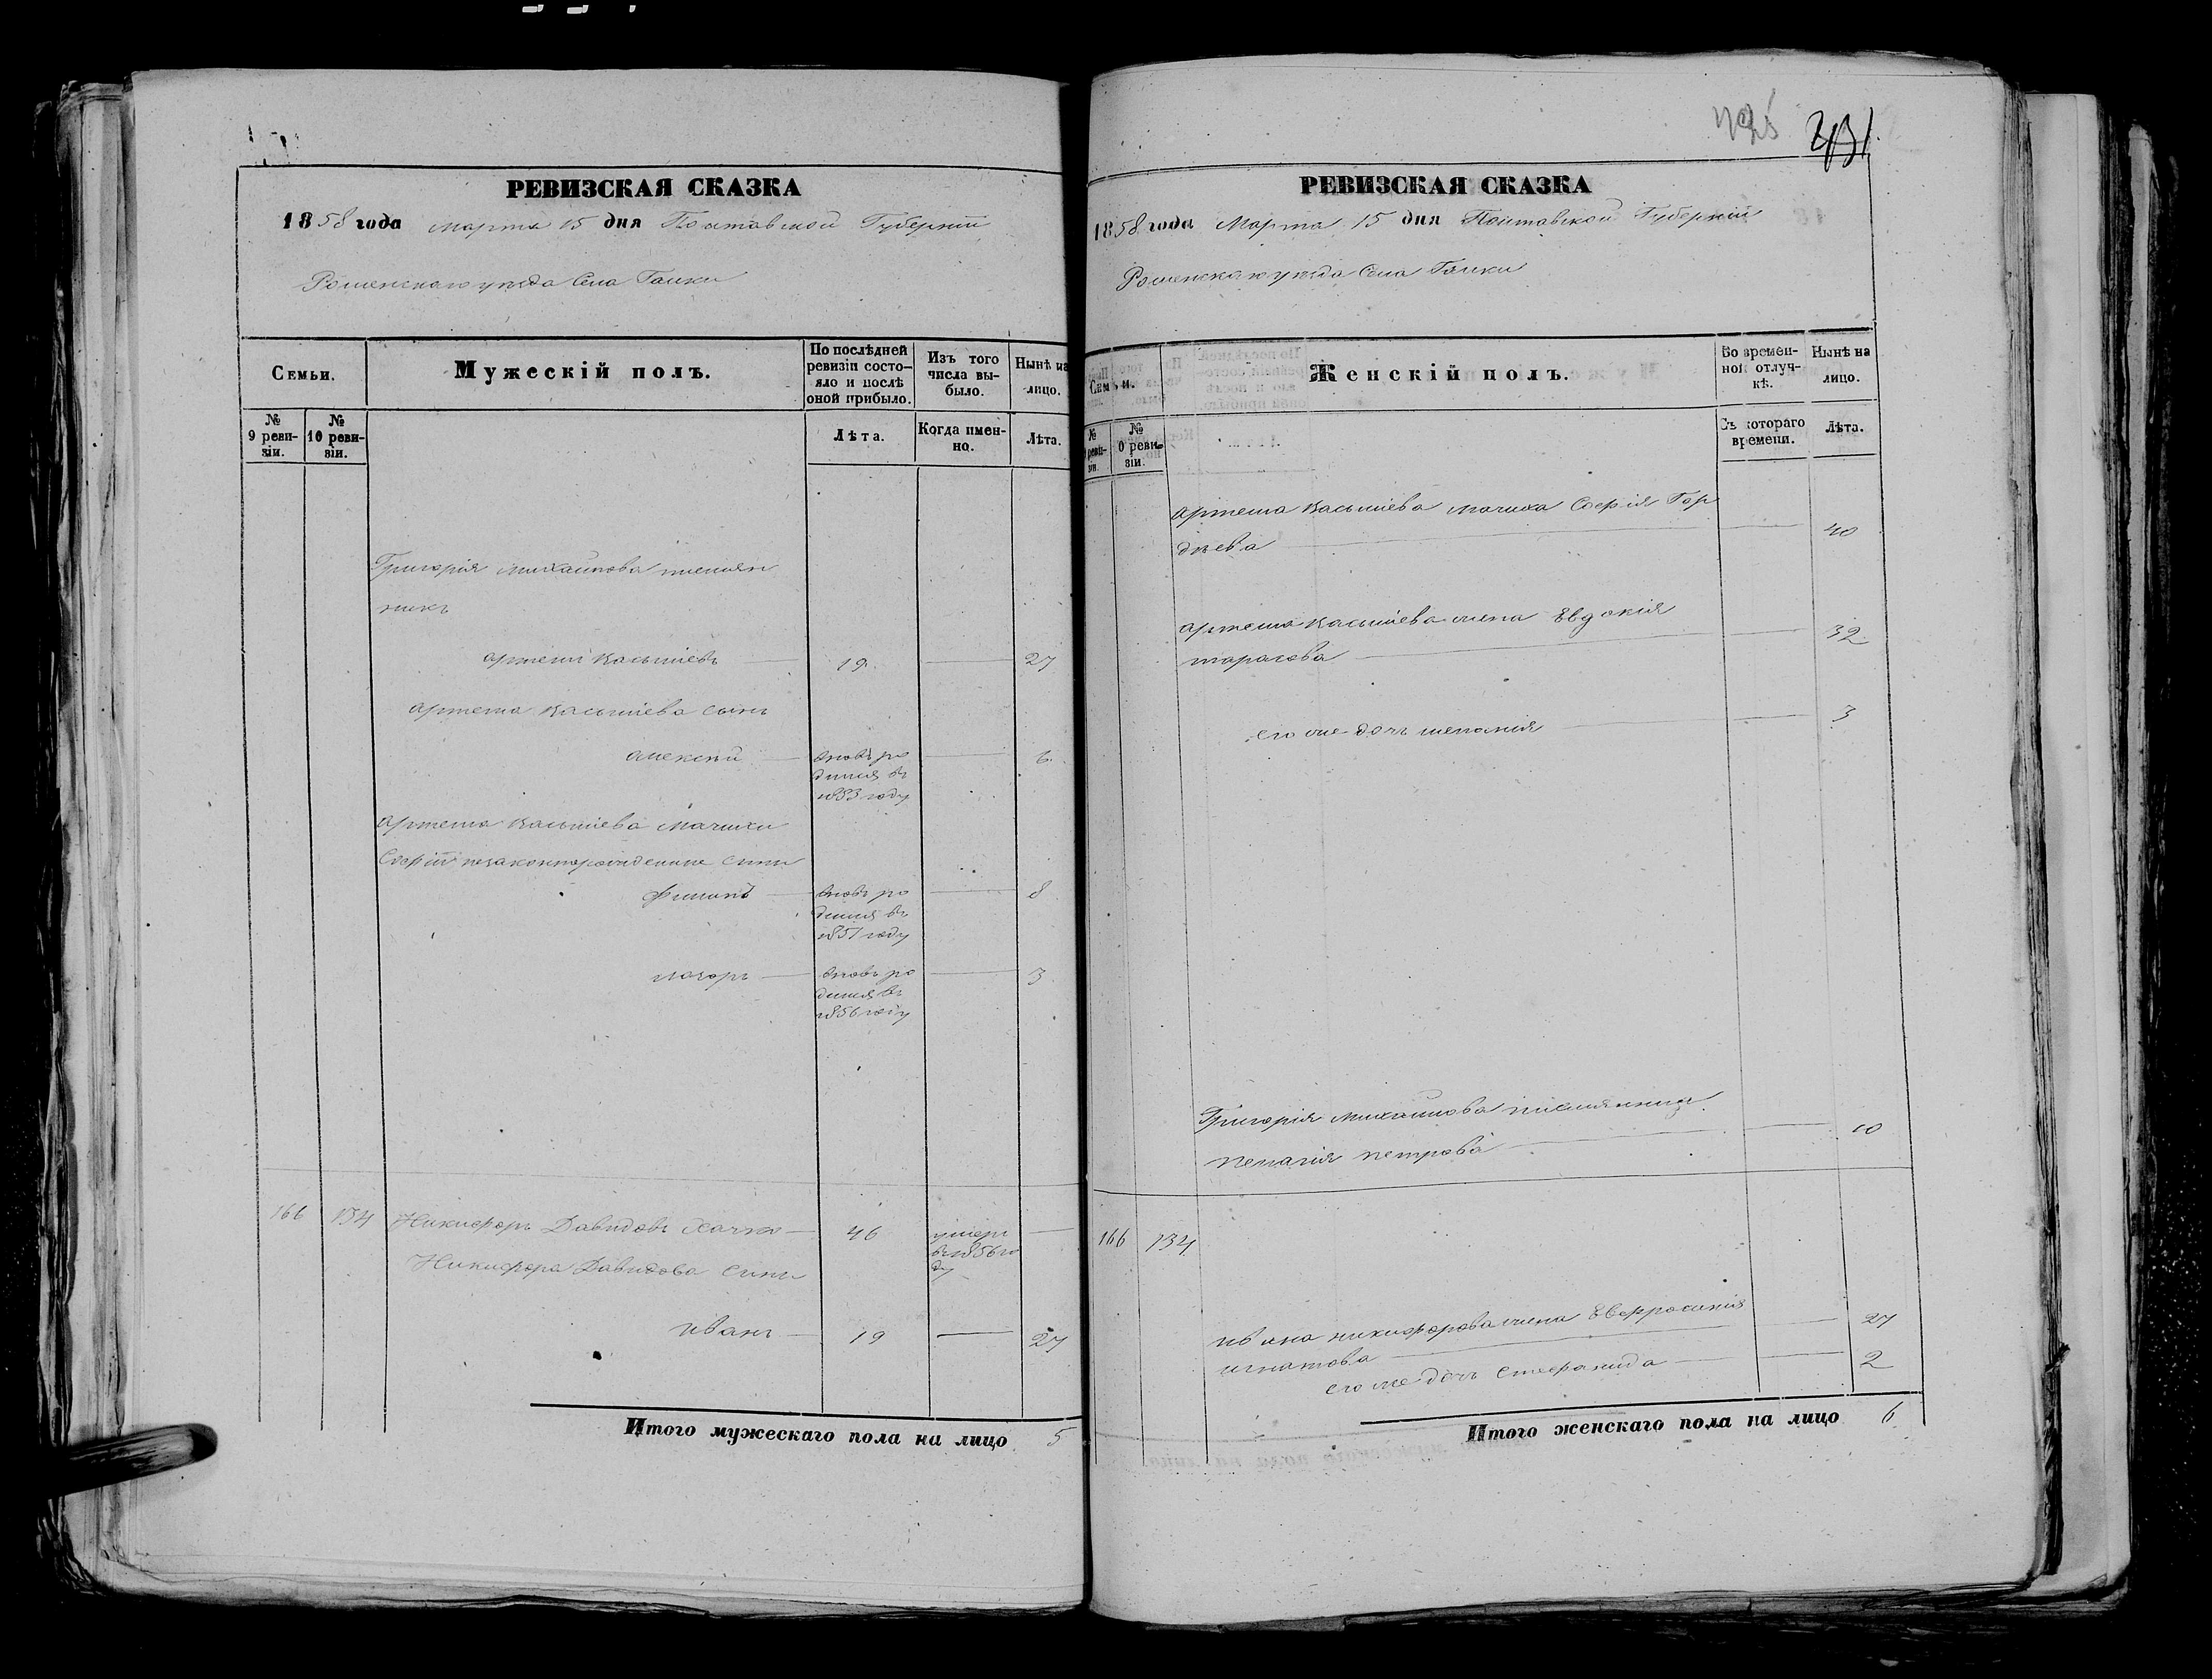 РЕВИЗСКАЯ СКАЗКА
1858 года Марта 15 дня Полтавской Губерніи
Роменскаго уезда Села Галки
Семьи.
Мужескій полъ.
По послѣдней ревизіи состояло и послѣ оной прибыло.
Изъ того числа выбыло.
Нынѣ на лицо.
№ 9 ревизіи.
№ 10 ревизіи.
Лѣта.
Когда именно.
Лѣта.
Григорія Михайлова племян
никъ
Артемъ Касьянівъ 19 27
Артема Сынъ
Алексѣй вновь ро 6
дился въ
1853 году
Артема Мачихи
Софіи незаконнорожденные Сыны
Филипъ вновь ро 8
дился въ
1851 году
вновь ро 3
дился въ
1856 году
166 134 Никифоръ Давидовъ 46 умеръ
въ 1856 го
ду
Никифора Давидова Сыны
Иванъ 19 27
Итого мужескаго пола на лицо 5
231
РЕВИЗСКАЯ СКАЗКА
1858 года Марта 15 дня Полтавской Губерніи
Роменскаго уезда Села Галки
Семьи.
Женскій полъ.
Во временной отлучкѣ.
Нынѣ на лицо.
№ ревизіи.
№ 0 ревизіи.
Съ котораго времени.
Лѣта.
Артема Мачиха Софія Гор
дѣева 40
Артема жена Евдокія
Тарасова 32
его же дочь 3
Григорія Михайлова племянница
Пелагія Петрова 10
166 134
Ивана Никифорова жена Евфросинія 27
Игнатова
его же дочь Стефанида 2
Итого женскаго пола на лицо 6